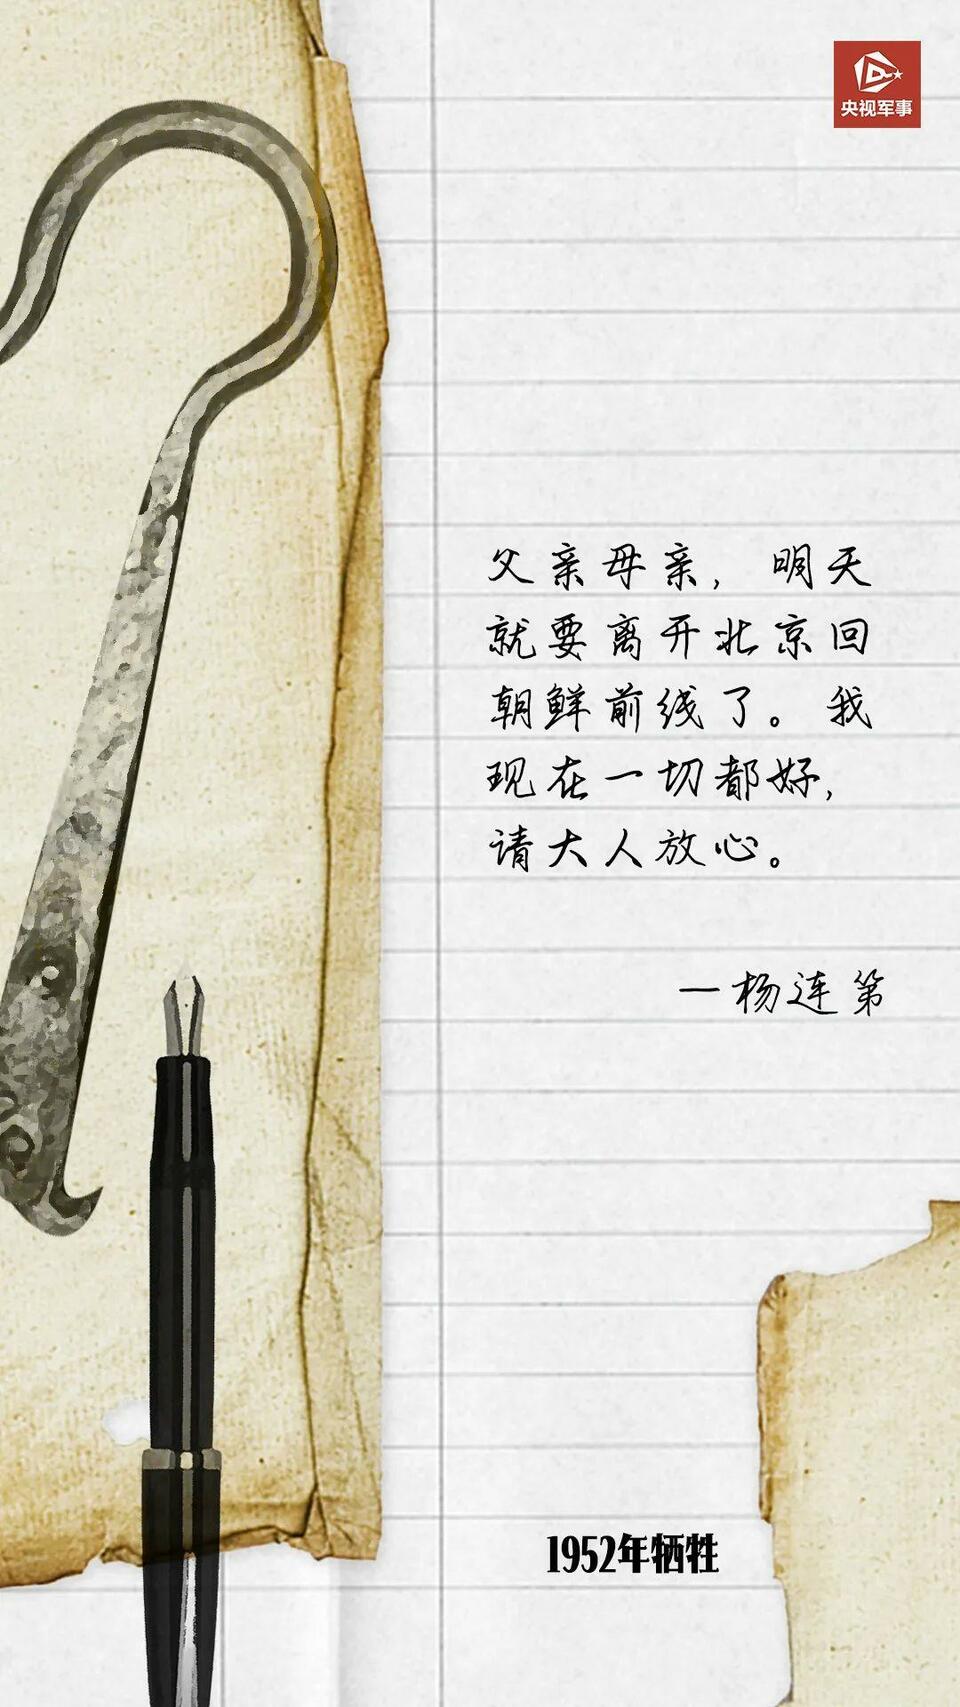 央视军事
父亲母亲，明天
就要离开北京回
朝鲜前线了。我
现在一切都好，
请大人放心。
一杨连第
1952年牺牲